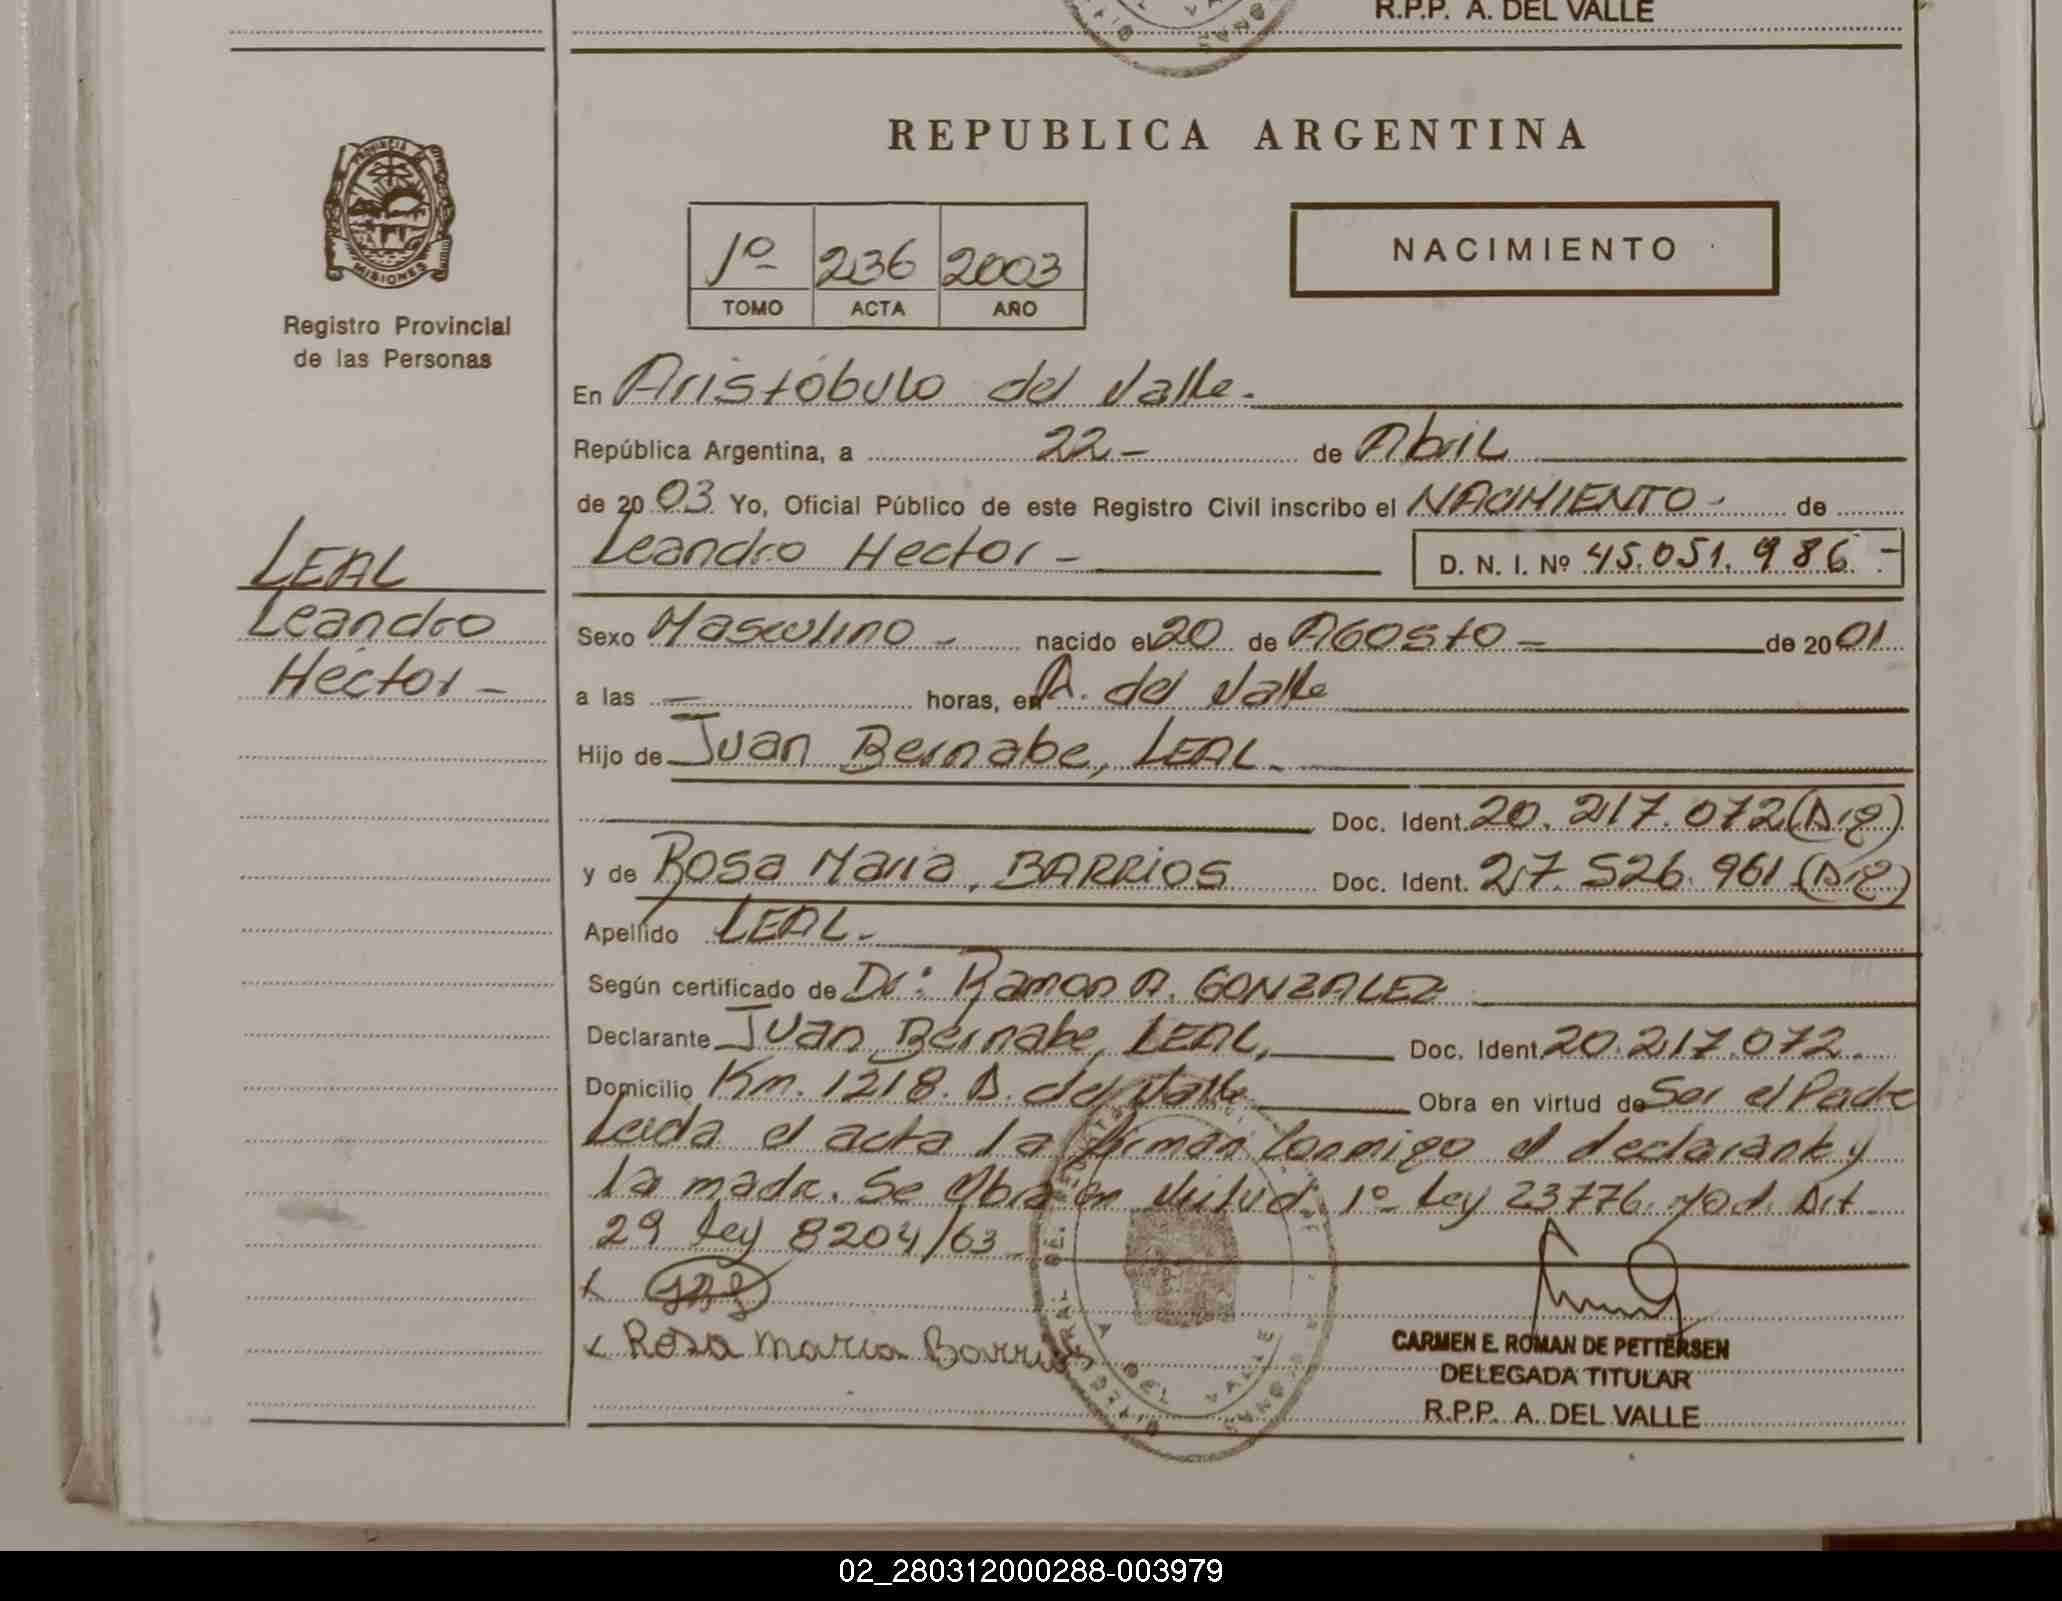 R.P.P. A. DEL VALLE
REPUBLICA ARGENTINA
PROVINCIA DE
MISIONES
Registro Provincial
de las Personas
1º 236 2003
TOMO ACTA AÑO
NACIMIENTO
En Aristóbulo del Valle.
República Argentina, a 22- de Abril
de 2003 Yo, Oficial Público de este Registro Civil inscribo el NACIMIENTO - de
Leandro Hector - D. N. I. Nº 45.051.986.-
LEAL
Leandro
Hector -
Sexo Masculino - nacido el 20 de AGOSTO - de 2001
a las — horas, en A. del Valle
Hijo de Juan Bernabe, LEAL.
Doc. Ident. 20.217.072 (Arg)
y de Rosa Maria, BARRIOS Doc. Ident. 27.526.961 (Arg)
Apellido LEAL.
Según certificado de Dr: Ramon A. GONZALEZ
Declarante Juan Bernabe, LEAL, Doc. Ident. 20.217.072.
Domicilio Km. 1218. A. del Valle Obra en virtud de Ser el Padre
Leida el acta la firman Conmigo el declarante y
la madre. Se Obra en Virtud 1º Ley 23776. Mod. Art
29 Ley 8204/63
x
x Rosa maria Barrios
CARMEN E. ROMAN DE PETTERSEN
DELEGADA TITULAR
R.P.P. A. DEL VALLE
A. DEL VALLE
02_280312000288-003979